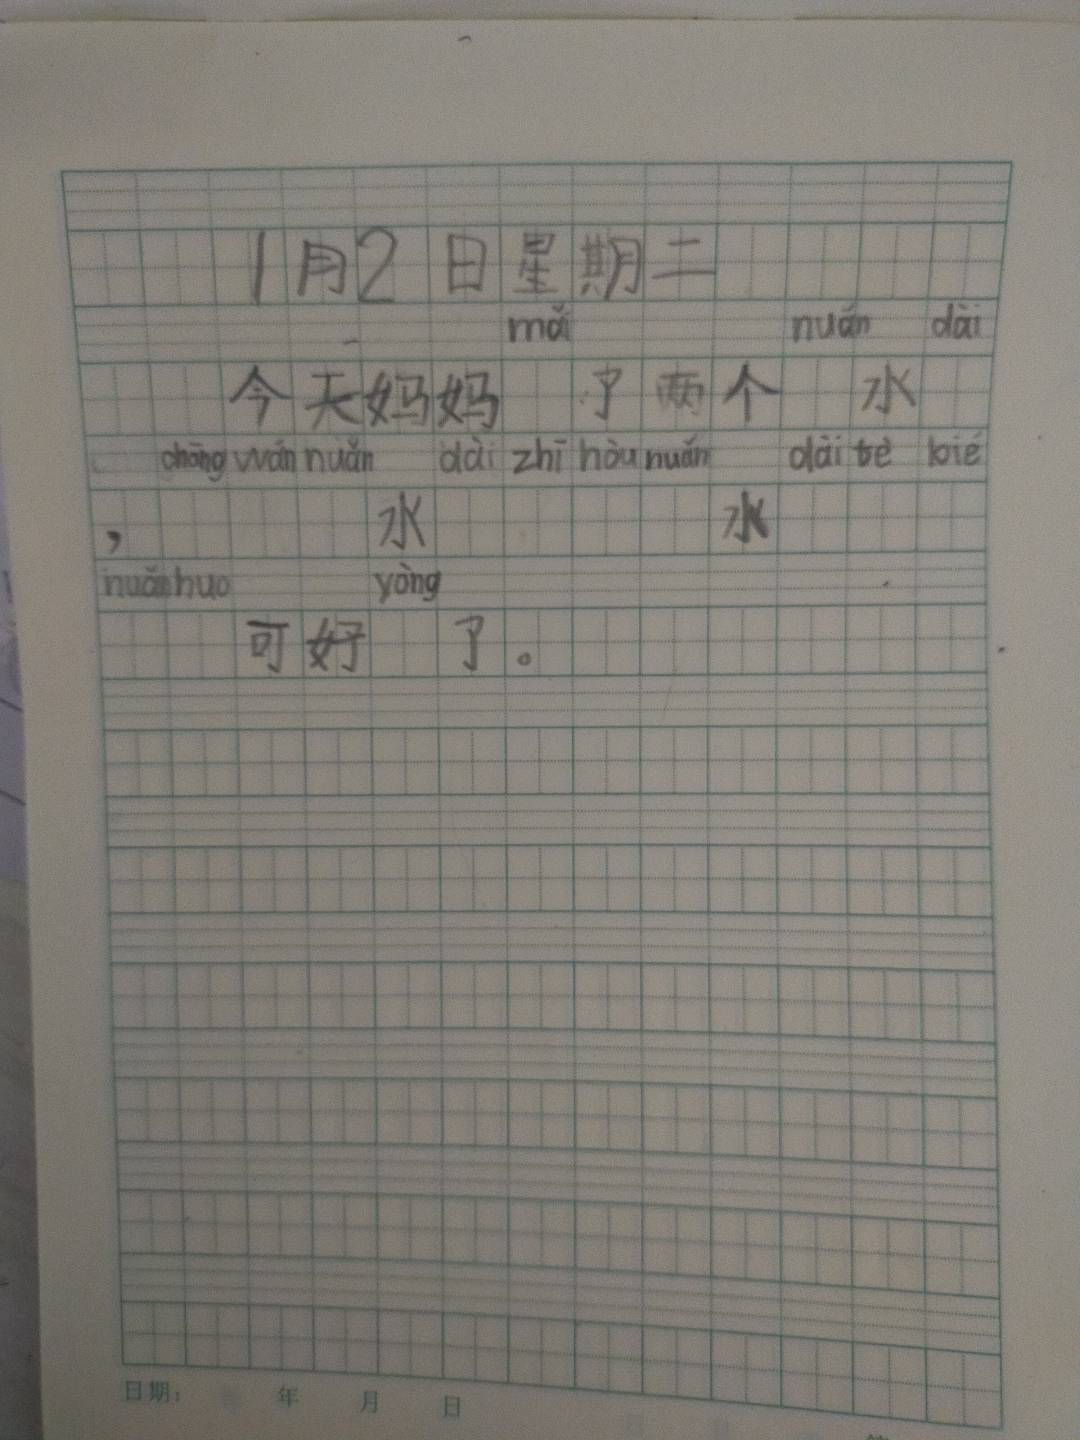 1月2日星期二
mǎi nuǎn dài
今天妈妈 了两个 水
chōng wán nuǎn dài zhī hòu nuǎn dài tè bié
， 水 水
nuǎn huo yòng
可好 了。
日期： 年 月 日